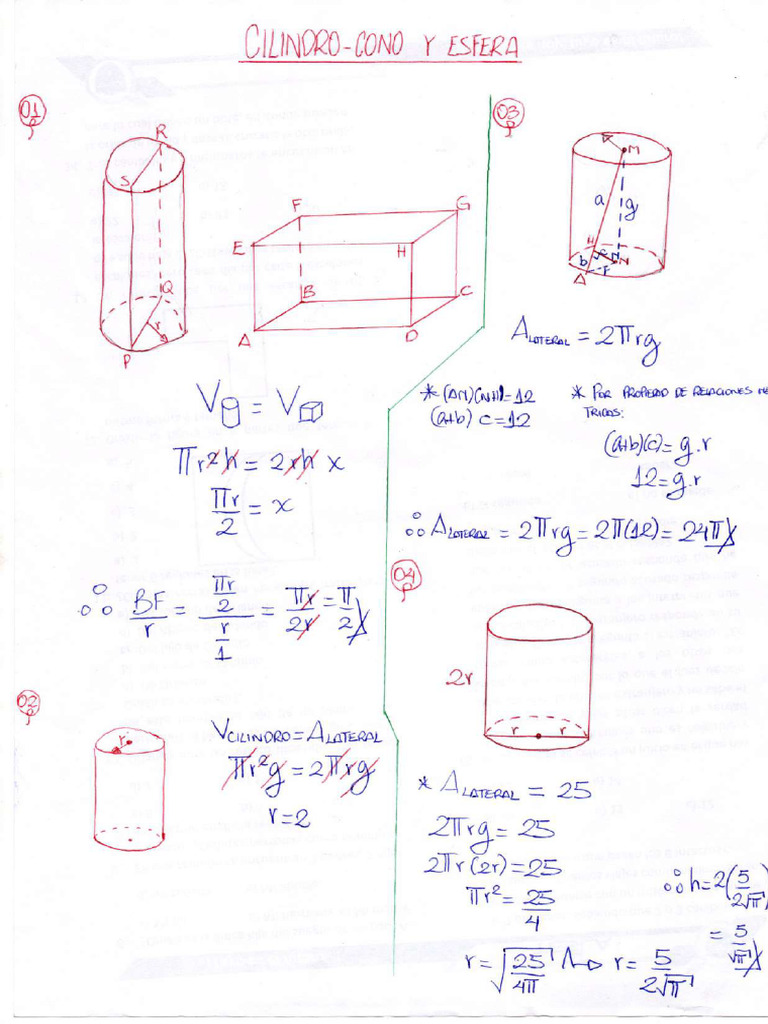 CILINDRO-CONO Y ESFERA
01
R
S
Q
r
P
F
G
E
H
B
C
A
D
V = V
πr²h = 2rh x
πr/2 = x
∴ BF/r = (πr/2)/(r/1) = πr/2r = π/2
02
r
VCILINDRO = ALATERAL
πr²g = 2πrg
r=2
03
M
a
g
H
b
c
N
A
r
ALATERAL = 2πrg
* (AM)(NH)=12
(a+b) c=12
* POR PROPIEDAD DE RELACIONES ME
TRICAS:
(a+b)(c)= g.r
12=g.r
∴ ALATERAL = 2πrg = 2π(12) = 24π
04
2r
r r
* ALATERAL = 25
2πrg = 25
2πr(2r)=25
πr² = 25/4
r = √(25/4π) ∧→ r = 5/2√π
∴ h=2(5/2√π)
= 5/√π